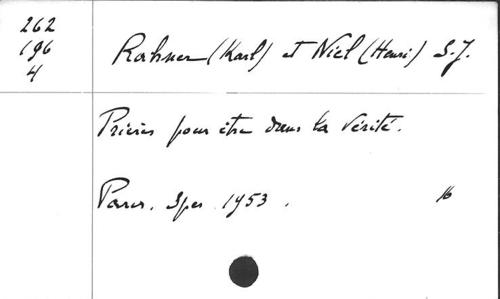 262
196
4
Rahner (Karl) et Niel (Henri) S.J.
Prières pour être dans la Vérité.
Paris. Spes 1953. 16